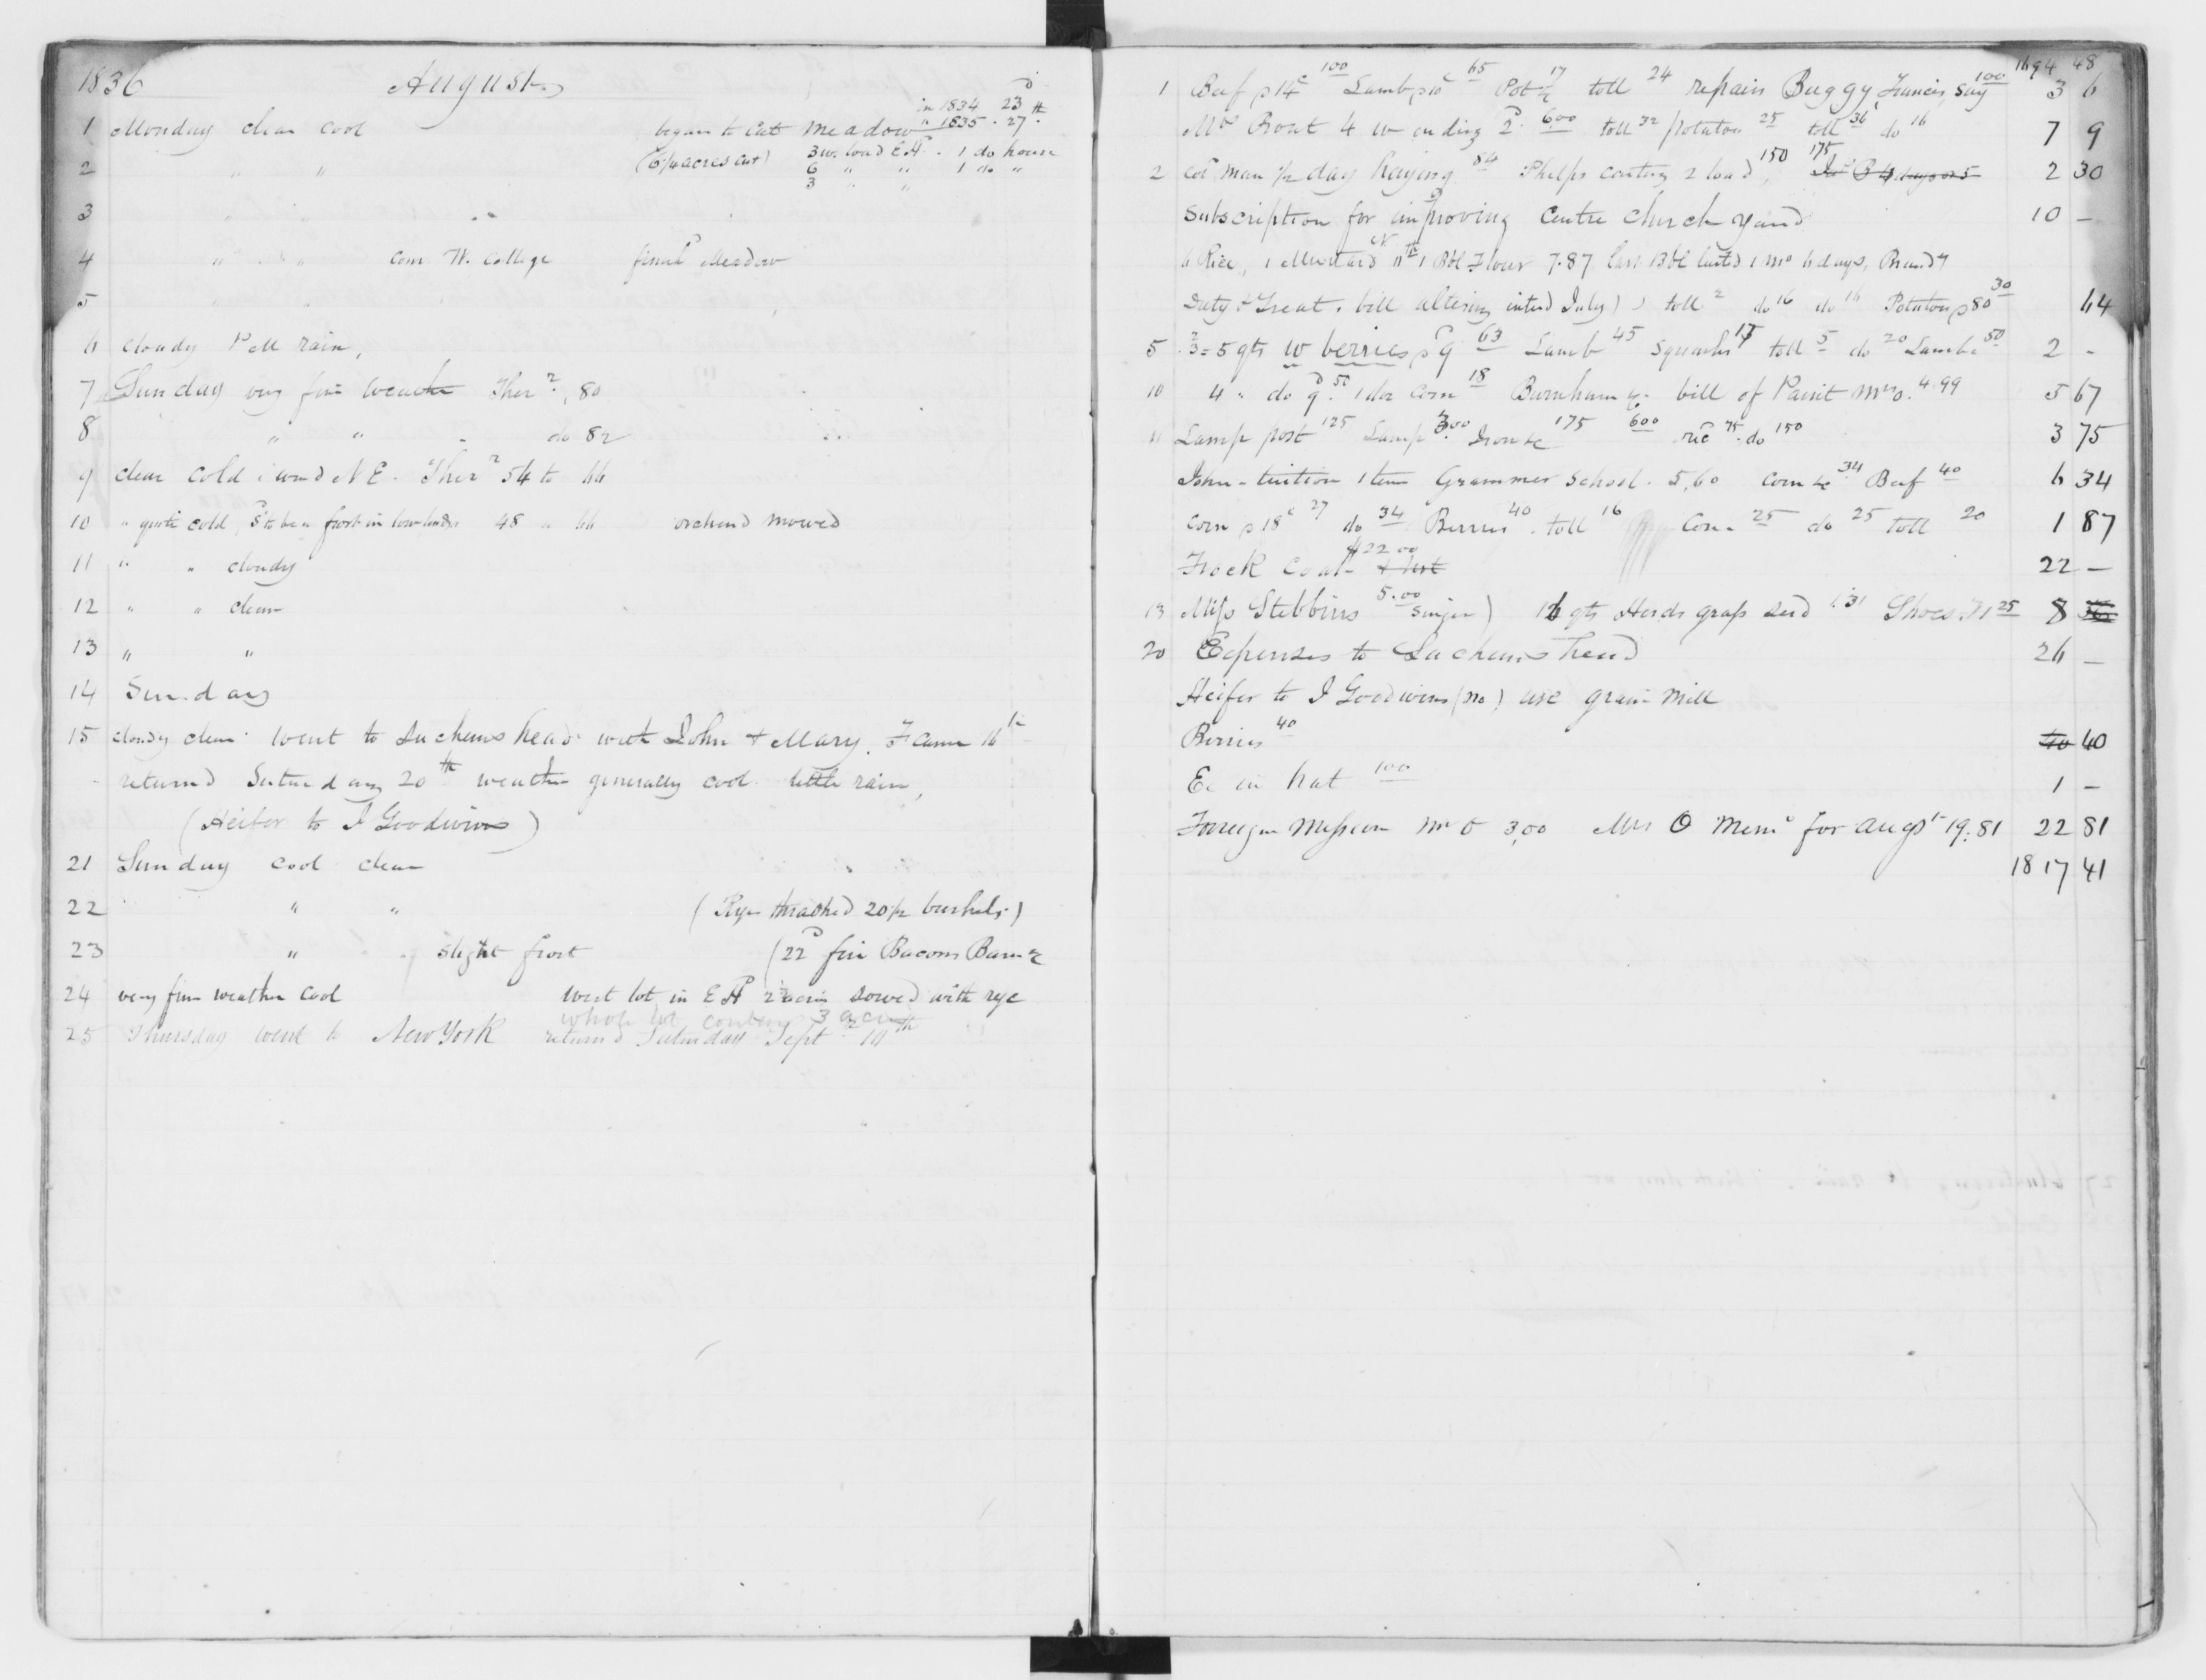 1836 August
in 1834 23d
1 Monday clear cool began to cut meadow " 1835 . 27th.
2 " " (6 1/4 acres cut) 3 w. load E H . 1 do house
6 " " 1 do "
3 " "
3 " "
4 " " com. W. College finisd Meadow
5 " "
6 cloudy P M rain,
7 Sunday very fine weather Ther r. 80
8 " " " do 82
9 clear cold wind N E. Ther r 54 to 66
10 " quite cold, sd to be a frost in low lands 48 " 66 orchard mowed
11 " " cloudy
12 " " clear
13 " "
14 Sunday
15 cloudy clear went to Sachems head with John & Mary. F came 16th
returned Saturday 20th weather generally cool little rain,
(Heifer to J Goodwins)
21 Sunday cool clear
22 " " (Rye thrashed 20 1/2 bushels)
23 " " slight frost (22d fire Bacons Barn &
24 very fine weather cool West lot in E H 2 1/2 acres sowed with rye
whole lot contains 3 acres
25 Thursday went to New York returnd Saturday Sept 10th
1694 48
1 Beef p 14c 100 Lamb p 10c 65 Pot &c 17 toll 24 repairs Buggy, Francis, say 100 3 6
Mrs Brout 4 w ending 2d 6.00 toll 32 potatoes 25 toll 36 do 16 7 9
2 cold man 1/2 day haying 84 Phelps carting 2 load 150 175 2 30
Subscription for improving Centre church yard 10 —
6 Rice, 1 Mustard 1 Bbl Flour 7.87 last Bbl lasted 1 mo 6 days, Brandy
Duty & Treat. bill altering (entd July) toll 2 do 16 do 16 Potatoes p 80 30 64
5 2/3 = 5 qts W berries p q 63 Lamb 45 Squashes 17 toll 5 do 20 Lamb 50 2 -
10 4 " do qd 50 1 doz corn 18 Burnham &c bill of Paint Mrs O. 4.99 5 67
11 Lamp post 125 Lamp 3.00 Iron &c 175 600 75 do 150 3 75
John - tuition 1 term Grammer School. 5.60 corn &c 34 Beef 40 6 34
corn p 18c 27 do 34 Berries 40 toll 16 Corn 25 do 25 toll 20 1 87
$22.00
Frock Coat & vest 22 —
13 Miss Stebbins 5.00 singer) 16 qts Herds grass seed 1.31 Shoes J 1 25 8
20 Expenses to Sachems head 26 —
Heifer to J Goodwins (no) use grain mill
Berries 40 40 40
Ex in hat 100 1 —
Foreign Mission Mr O 3.00 Mrs O Memo for Augst 19.81 22 81
1817 41